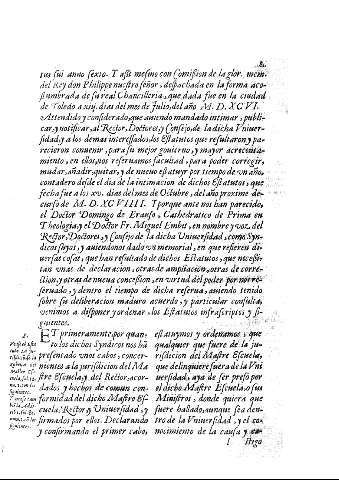 tus sui anno sexto. Y assi mesmo con Comission de la glor. mem.
del Rey don Philippe nuestro señor, despachada en la forma aco-
stumbrada de su real Chancilleria, que dada fue en la ciudad
de Toledo a xiij. dias del mes de Iulio, del año M. D. XCVI.
Attendido y considerado, que auiendo mandado intimar, publi-
car, y notificar, al Rector, Doctores, y Consejo, de la dicha Vniuer-
sidad, y a los demas interessados, los Estatutos que resultaron y pa-
recieron conuenir, para su mejor gouierno, y mayor acrecenta-
miento, en ellos, nos reseruamos facultad, para poder corregir,
mudar, añadir, quitar, y de nueuo estatuyr por tiempo de vn año,
contadero desde el dia de la intimacion de dichos Estatutos, que
fecha fue a los xv. dias del mes de Octubre, del año proxime de-
curso de M. D. XCVIIII. Y porque ante nos han parecido,
el Doctor Domingo de Eranso, Cathedratico de Prima en
Theologia, y el Doctor Fr. Miguel Embit, en nombre y voz, del
Rector, Doctores, y Consejo de la dicha Vniuersidad, como Syn-
dicos suyos, y auiendonos dado vn memorial, en que refieren di-
uersas cosas, que han resultado de dichos Estatutos, que necessi-
tan vnas de declaracion, otras de ampliacion, otras de corre-
ction, y otras de nueua concession, en virtud del poder por nos re-
seruado, y dentro el tiempo de dicha reserua, auiendo tenido
sobre su deliberacion maduro acuerdo, y particular consulta,
venimos a disponer y ordenar los Estatutos infrascriptos y si-
guientes.
ET primeramente por quan-
to los dichos Syndicos nos hã
presentado vnos cabos, concer-
nientes a la jurisdicion del Ma
stre Escuela, y del Rector, acor-
dados y hechos de comun con-
formidad del dicho Mastre Es-
cuela, Rector y Vniuersidad, y
firmados por ellos. Declarando
y confirmando el primer cabo,
estatuymos y ordenamos, que
qualquier que fuere de la ju-
risdicion del Mastre Escuela,
que delinquiere fuera de la Vni
uersidad, aya de ser preso por
el dicho Mastre Escuela, o sus
Ministros, donde quiera que
fuere hallado, aunque sea den-
tro de la Vniuersidad, y el co-
nocimiento de la causa y ca-
I stigo